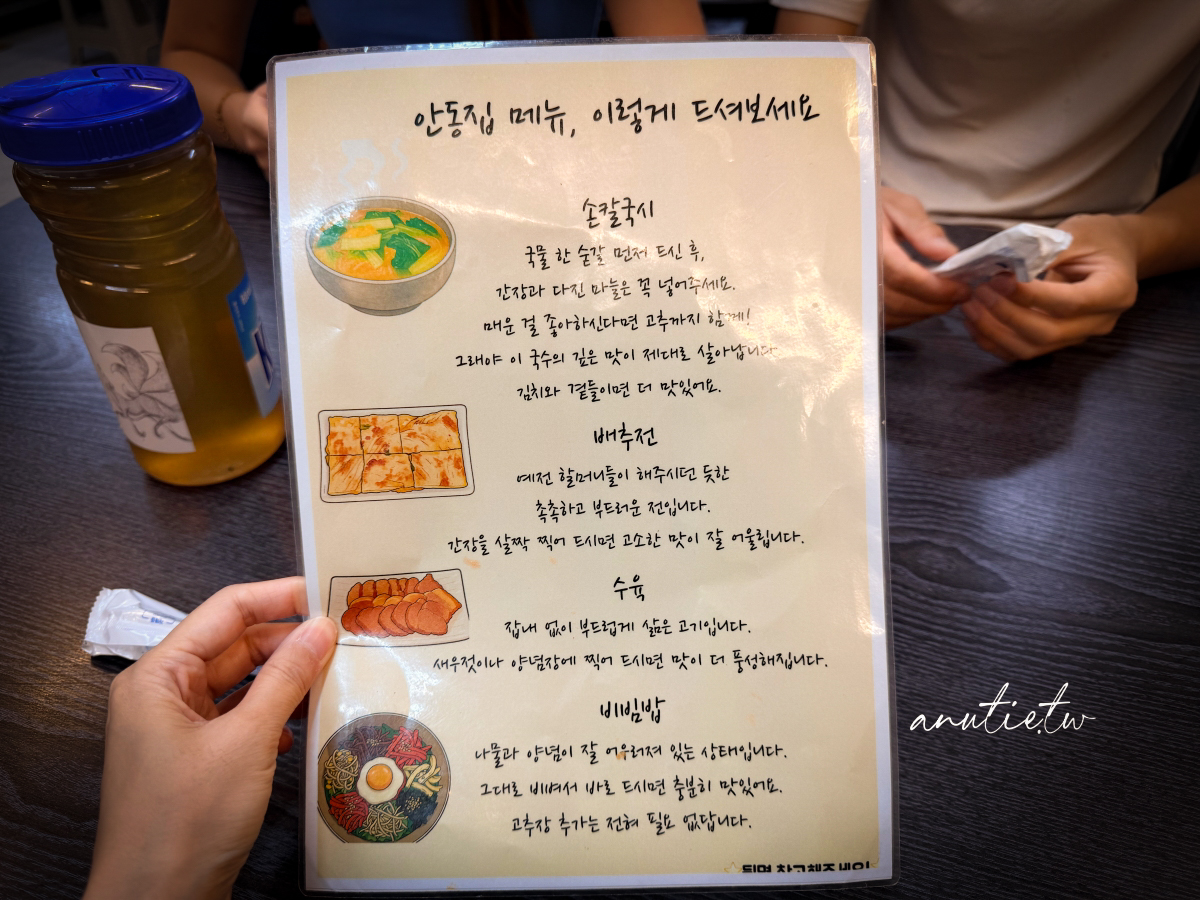 안동집 메뉴, 이렇게 드셔보세요
손칼국시
국물 한 숟갈 먼저 드신 후,
간장과 다진 마늘은 꼭 넣어주세요.
매운 걸 좋아하신다면 고추까지 함께!
그래야 이 국수의 깊은 맛이 제대로 살아납니다
김치와 곁들이면 더 맛있어요.
배추전
예전 할머니들이 해주시던 듯한
촉촉하고 부드러운 전입니다.
간장을 살짝 찍어 드시면 고소한 맛이 잘 어울립니다.
수육
잡내 없이 부드럽게 삶은 고기입니다.
새우젓이나 양념장에 찍어 드시면 맛이 더 풍성해집니다.
비빔밥
나물과 양념이 잘 어우러져 있는 상태입니다.
그대로 비벼서 바로 드시면 충분히 맛있어요.
고추장 추가는 전혀 필요 없답니다.
뒷면 참고해주세요!
anutie.tw